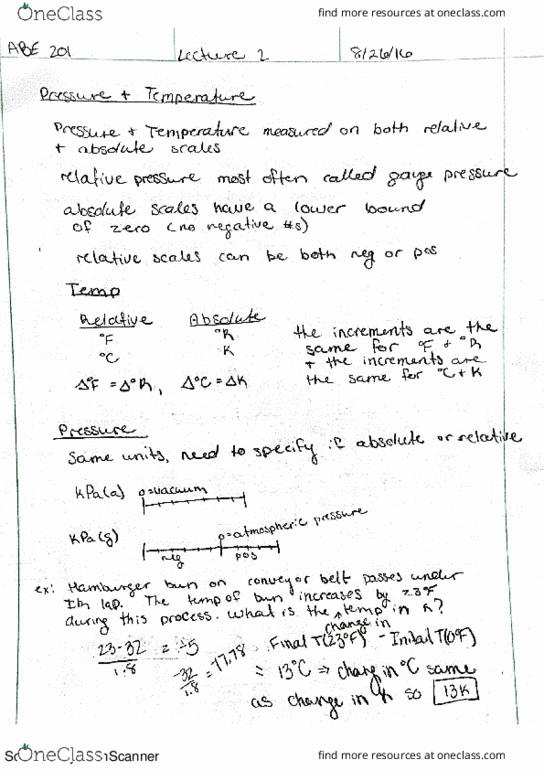 OneClass
find more resources at oneclass.com
ABE 201
Lecture 2
8/26/16
Pressure + Temperature
Pressure + Temperature measured on both relative
+ absolute scales
relative pressure most often called gauge pressure
absolute scales have a lower bound
of zero (no negative #s)
relative scales can be both neg or pos
Temp
Relative Absolute
°F °R
°C K
the increments are the
same for °F + °R
+ the increments are
the same for °C + K
Δ°F = Δ°R, Δ°C = ΔK
Pressure
Same units, need to specify if absolute or relative
kPa(a) 0=vacuum
kPa(g) 0=atmospheric pressure
neg pos
ex: Hamburger bun on conveyor belt passes under
The temp of bun increases by 23°F
during this process. What is the temp in K?
change in
23-32 / 1.8 = -5
-32 / 1.8 = -17.78
Final T(23°F) - Initial T(0°F)
= 13°C ⇒ change in °C same
as change in K so 13K
OneClass
Scanner
find more resources at oneclass.com